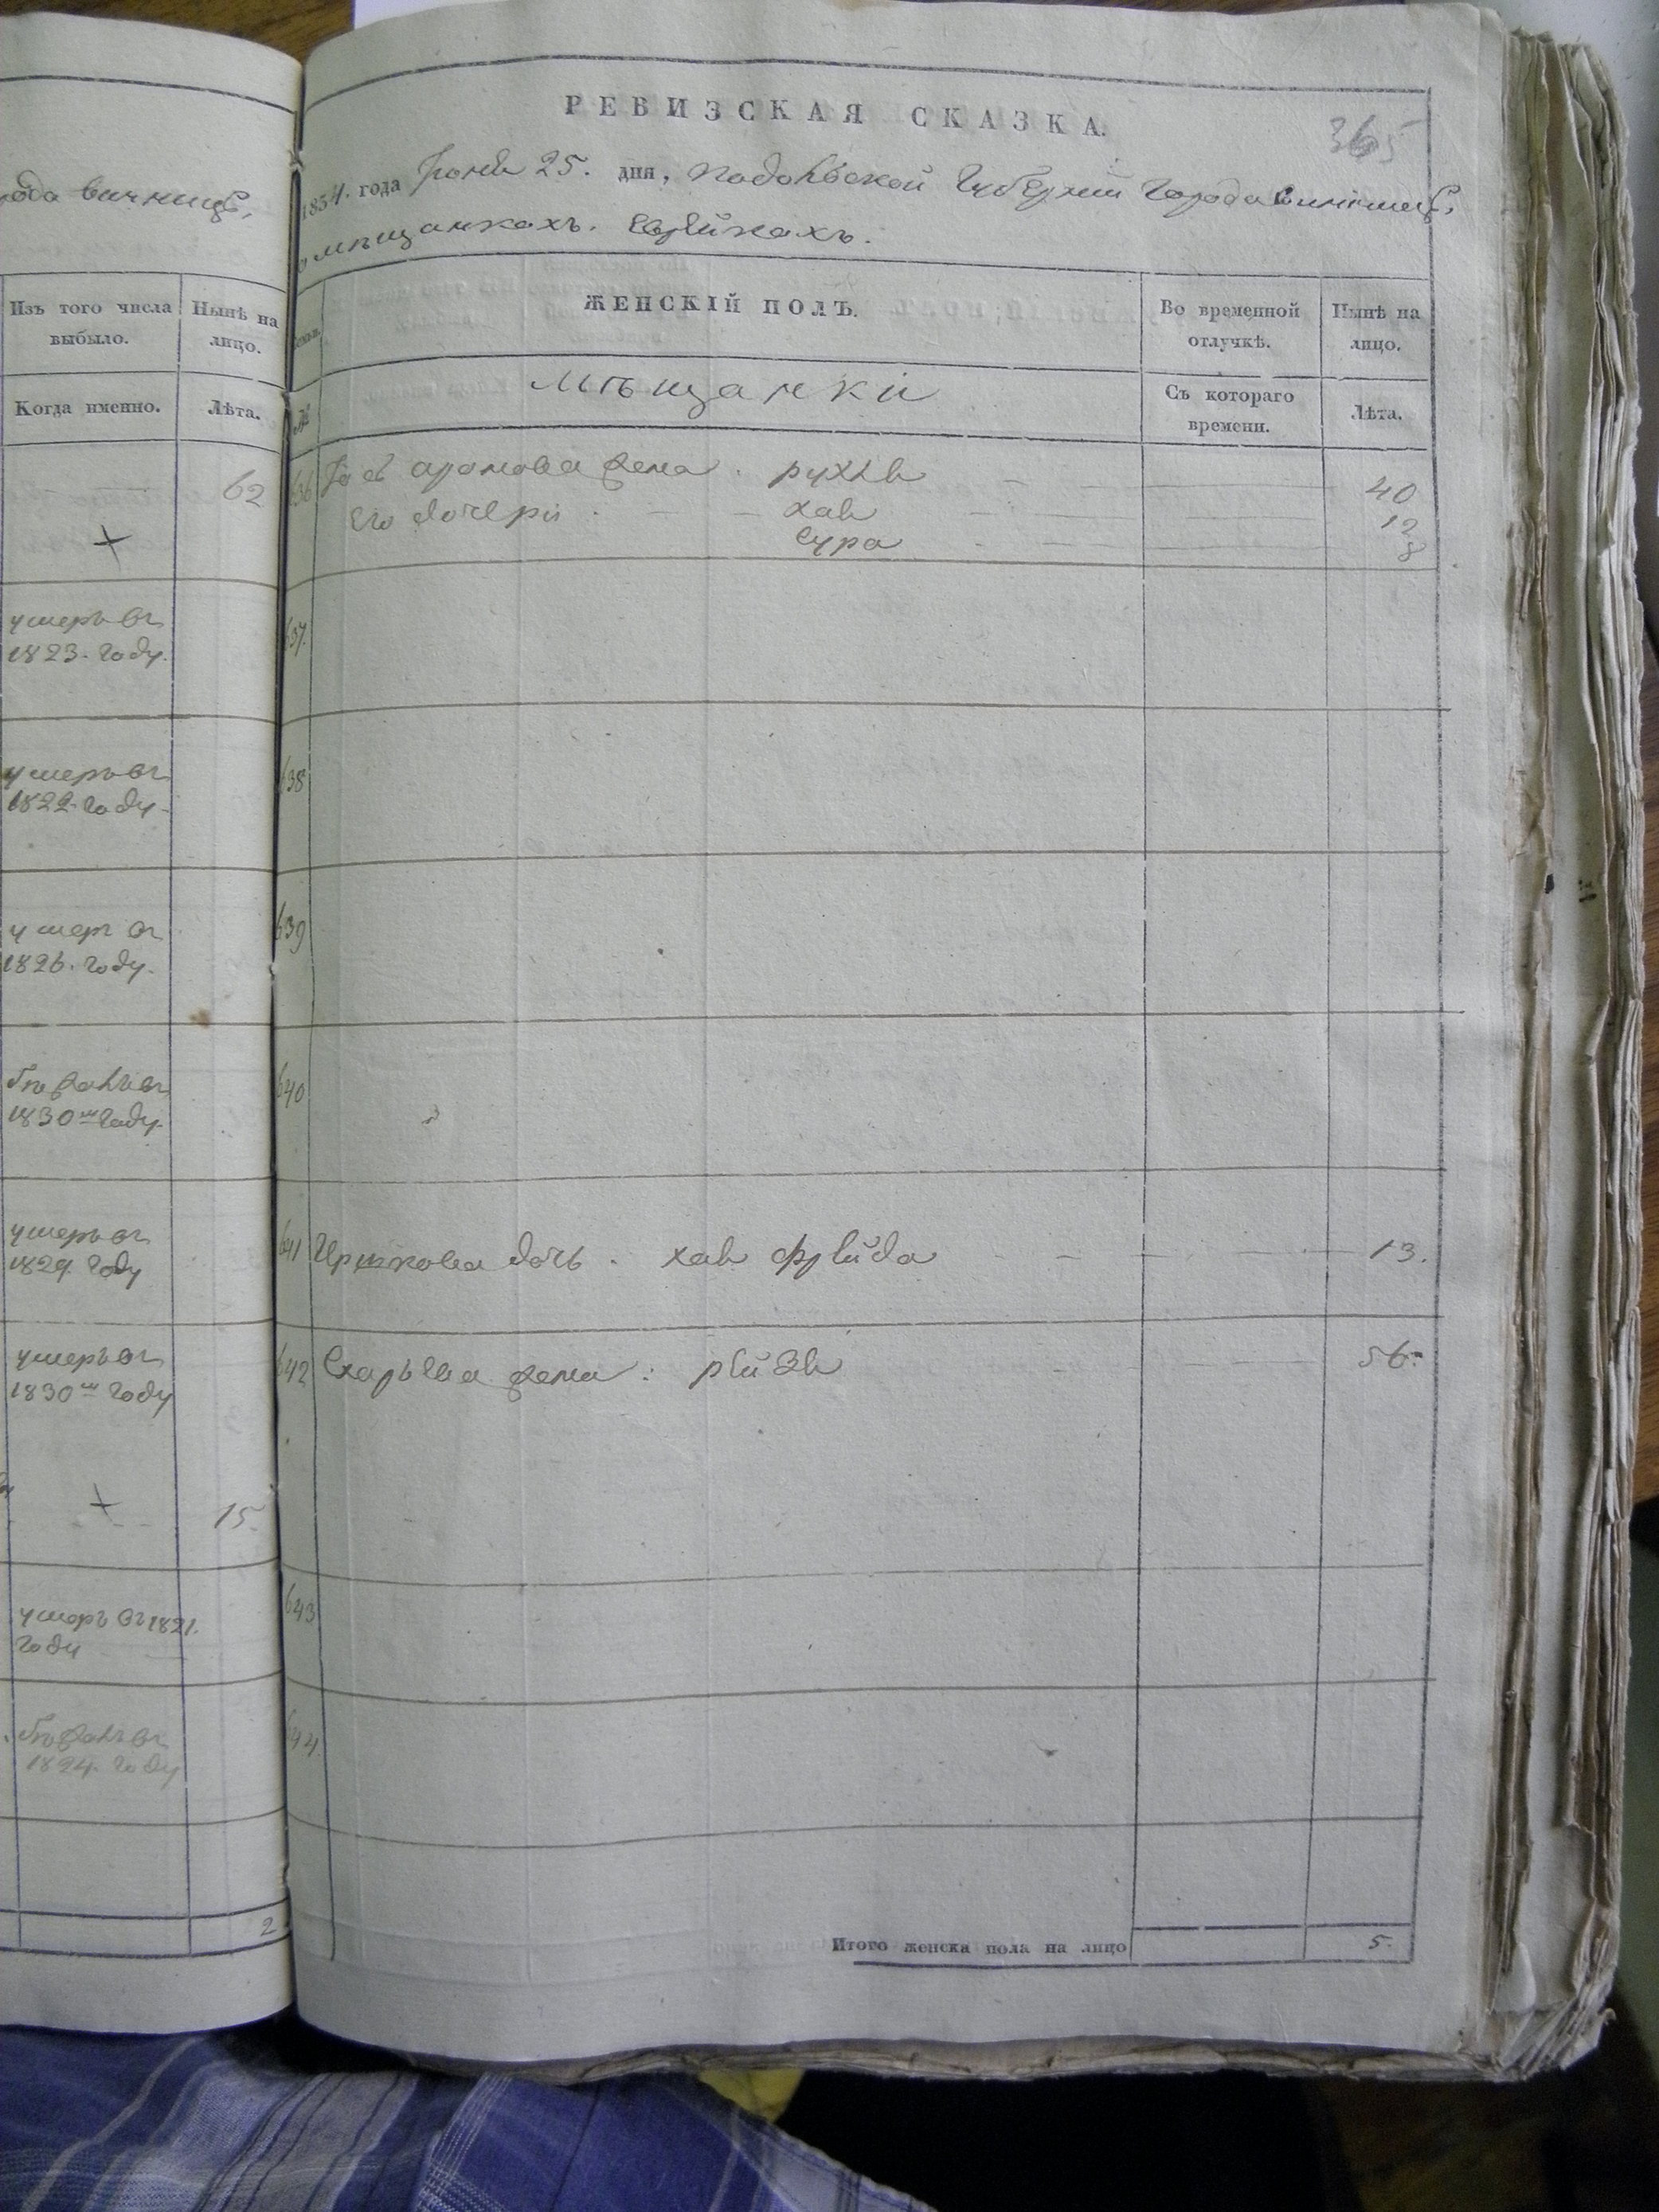 рода винницѣ,
Изъ того числа выбыло.
Нынѣ на лицо.
Когда именно.
Лѣта.
62
умеръ въ
1823. году.
умеръ въ
1822. году.
умеръ въ
1826. году.
1830 году.
умеръ въ
году
умеръ въ
1830 году
15
умеръ въ 1821.
году
1824. году
2
РЕВИЗСКАЯ СКАЗКА.
365
1834. года 25. дня, подольской Губерніи Города винницѣ,
о мѣщанкахъ. еврейкахъ.
ЖЕНСКІЙ ПОЛЪ.
Во временной отлучкѣ.
Нынѣ на лицо.
№
мѣщанки
Съ котораго времени.
Лѣта.
636 жена. рухля 40
Его дочери. хая 12
сура 8
637.
638
639
640
641 Иршкова дочь. хая фрейда 13.
642 жена: рейзя 56.
643
644
Итого женска пола на лицо 5.